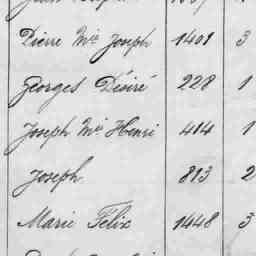 Pierre Mie Joseph 1401 3
Georges Désiré 228 1
Joseph Mie Henri 414 1
Joseph 813 2
Marie Félix 1448 3